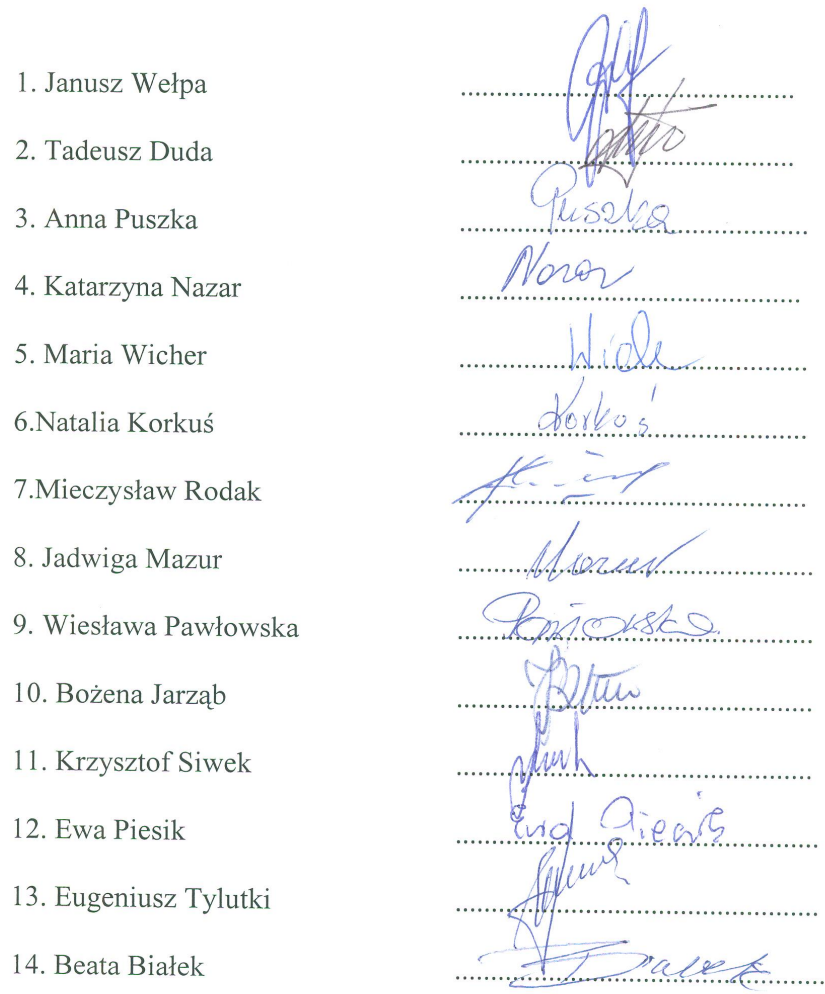 1. Janusz Wełpa
2. Tadeusz Duda
3. Anna Puszka Puszka
4. Katarzyna Nazar Nazar
5. Maria Wicher
6.Natalia Korkuś Korkuś
7.Mieczysław Rodak
8. Jadwiga Mazur Mazur
9. Wiesława Pawłowska
10. Bożena Jarząb
11. Krzysztof Siwek
12. Ewa Piesik Ewa Piesik
13. Eugeniusz Tylutki
14. Beata Białek